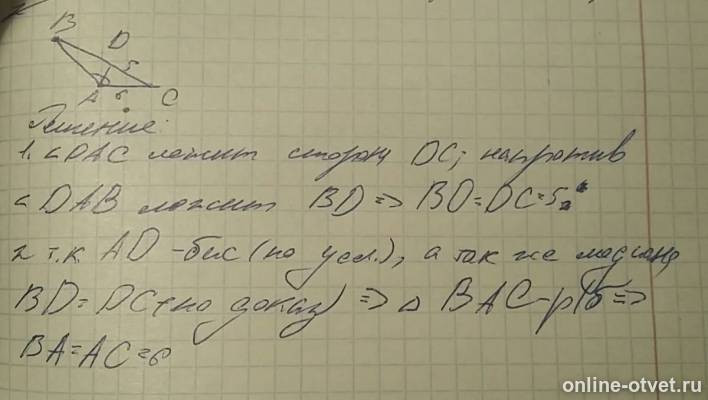 B
D
5
A 6 C
Решение:
1. ∠DAC лежит сторона DC; напротив
∠DAB лежит BD => BD=DC=5
2 т.к AD -бис (по усл.), а так же медиана
BD=DC (по доказ) => △ BAC-р/б =>
BA=AC=6
online-otvet.ru